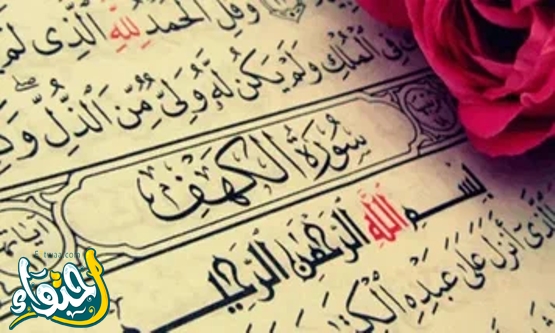 وَقُلِ الْحَمْدُ لِلَّهِ الَّذِى لَمْ
فِى الْمُلْكِ وَلَمْ يَكُن لَّهُ وَلِىٌّ مِّنَ الذُّلِّ
سُورَةُ الْكَهْفِ
بِسْمِ اللَّهِ الرَّحْمَٰنِ الرَّحِيمِ
الَّذِى أَنزَلَ عَلَىٰ عَبْدِهِ الْكِتَابَ